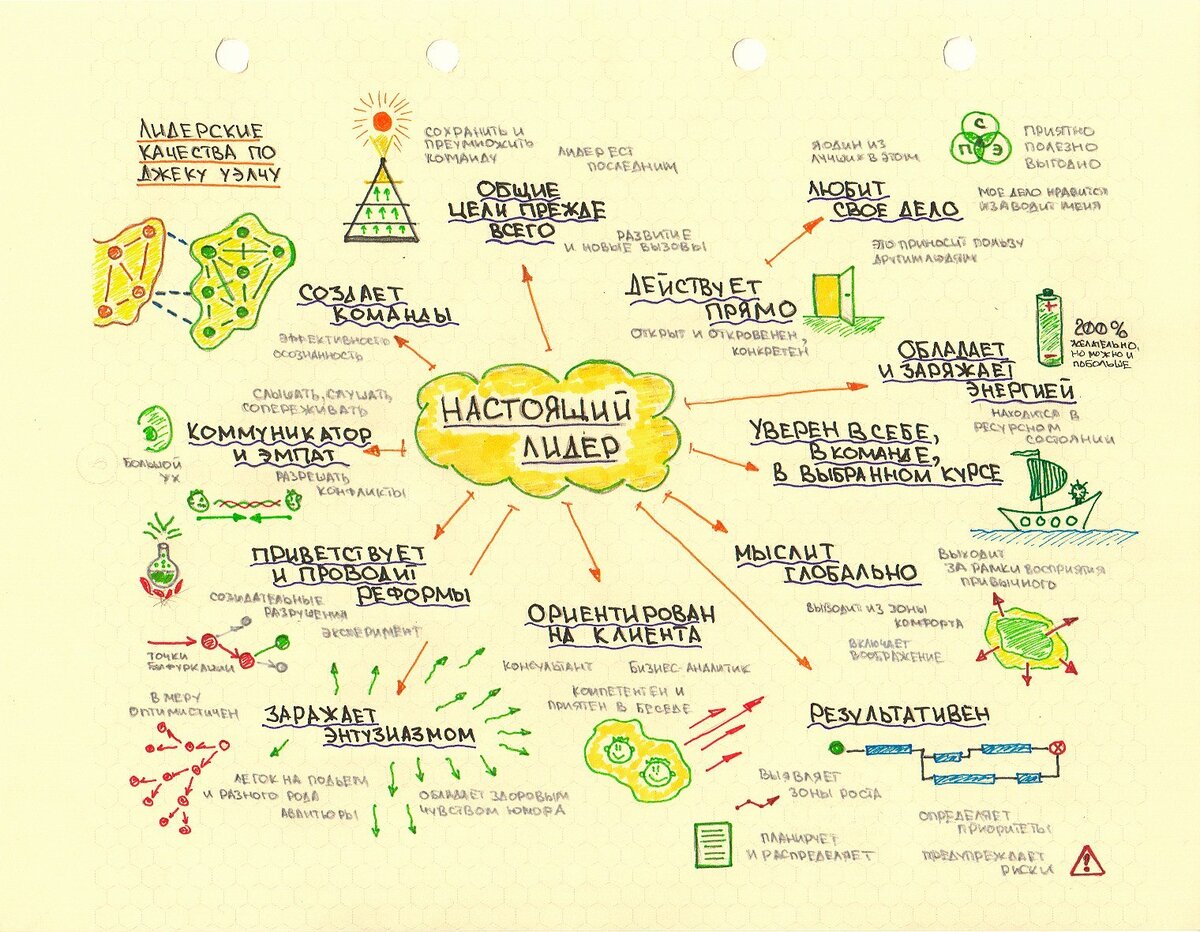 ЛИДЕРСКИЕ
КАЧЕСТВА ПО
ДЖЕКУ УЭЛЧУ
НАСТОЯЩИЙ
ЛИДЕР
СОХРАНИТЬ И
ПРЕУМНОЖИТЬ
КОМАНДУ
ЛИДЕР ЕСТ
ПОСЛЕДНИМ
ОБЩИЕ
ЦЕЛИ ПРЕЖДЕ
ВСЕГО
РАЗВИТИЕ
И НОВЫЕ ВЫЗОВЫ
Я ОДИН ИЗ
ЛУЧШИХ В ЭТОМ
ЛЮБИТ
СВОЕ ДЕЛО
С
П Э
ПРИЯТНО
ПОЛЕЗНО
ВЫГОДНО
МОЕ ДЕЛО НРАВИТСЯ
И ЗАВОДИТ МЕНЯ
ЭТО ПРИНОСИТ ПОЛЬЗУ
ДРУГИМ ЛЮДЯМ
ДЕЙСТВУЕТ
ПРЯМО
ОТКРЫТ И ОТКРОВЕНЕН,
КОНКРЕТЕН
ОБЛАДАЕТ
И ЗАРЯЖАЕТ
ЭНЕРГИЕЙ
+
-
200%
ЖЕЛАТЕЛЬНО,
НО МОЖНО И
ПОБОЛЬШЕ
НАХОДИТСЯ В
РЕСУРСНОМ
СОСТОЯНИИ
УВЕРЕН В СЕБЕ,
В КОМАНДЕ,
В ВЫБРАННОМ КУРСЕ
МЫСЛИТ
ГЛОБАЛЬНО
ВЫХОДИТ
ЗА РАМКИ ВОСПРИЯТИЯ
ПРИВЫЧНОГО
ВЫВОДИТ ИЗ ЗОНЫ
КОМФОРТА
ВКЛЮЧАЕТ
ВООБРАЖЕНИЕ
РЕЗУЛЬТАТИВЕН
ВЫЯВЛЯЕТ
ЗОНЫ РОСТА
ПЛАНИРУЕТ
И РАСПРЕДЕЛЯЕТ
ОПРЕДЕЛЯЕТ
ПРИОРИТЕТЫ
ПРЕДУПРЕЖДАЕТ
РИСКИ
!
ОРИЕНТИРОВАН
НА КЛИЕНТА
КОНСУЛЬТАНТ
БИЗНЕС-АНАЛИТИК
КОМПЕТЕНТЕН И
ПРИЯТЕН В БЕСЕДЕ
ЗАРАЖАЕТ
ЭНТУЗИАЗМОМ
В МЕРУ
ОПТИМИСТИЧЕН
ЛЕГОК НА ПОДЬЕМ
И РАЗНОГО РОДА
АВАНТЮРЫ
ОБЛАДАЕТ ЗДОРОВЫМ
ЧУВСТВОМ ЮМОРА
ПРИВЕТСТВУЕТ
И ПРОВОДИТ
РЕФОРМЫ
СОЗИДАТЕЛЬНЫЕ
РАЗРУШЕНИЯ
ЭКСПЕРИМЕНТ
ТОЧКИ
БИФУРКАЦИИ
СЛЫШАТЬ, СЛУШАТЬ,
СОПЕРЕЖИВАТЬ
КОММУНИКАТОР
И ЭМПАТ
БОЛЬШОЙ
УХ
РАЗРЕШАТЬ
КОНФЛИКТЫ
СОЗДАЕТ
КОМАНДЫ
ЭФФЕКТИВНОСТЬ
ОСОЗНАННОСТЬ